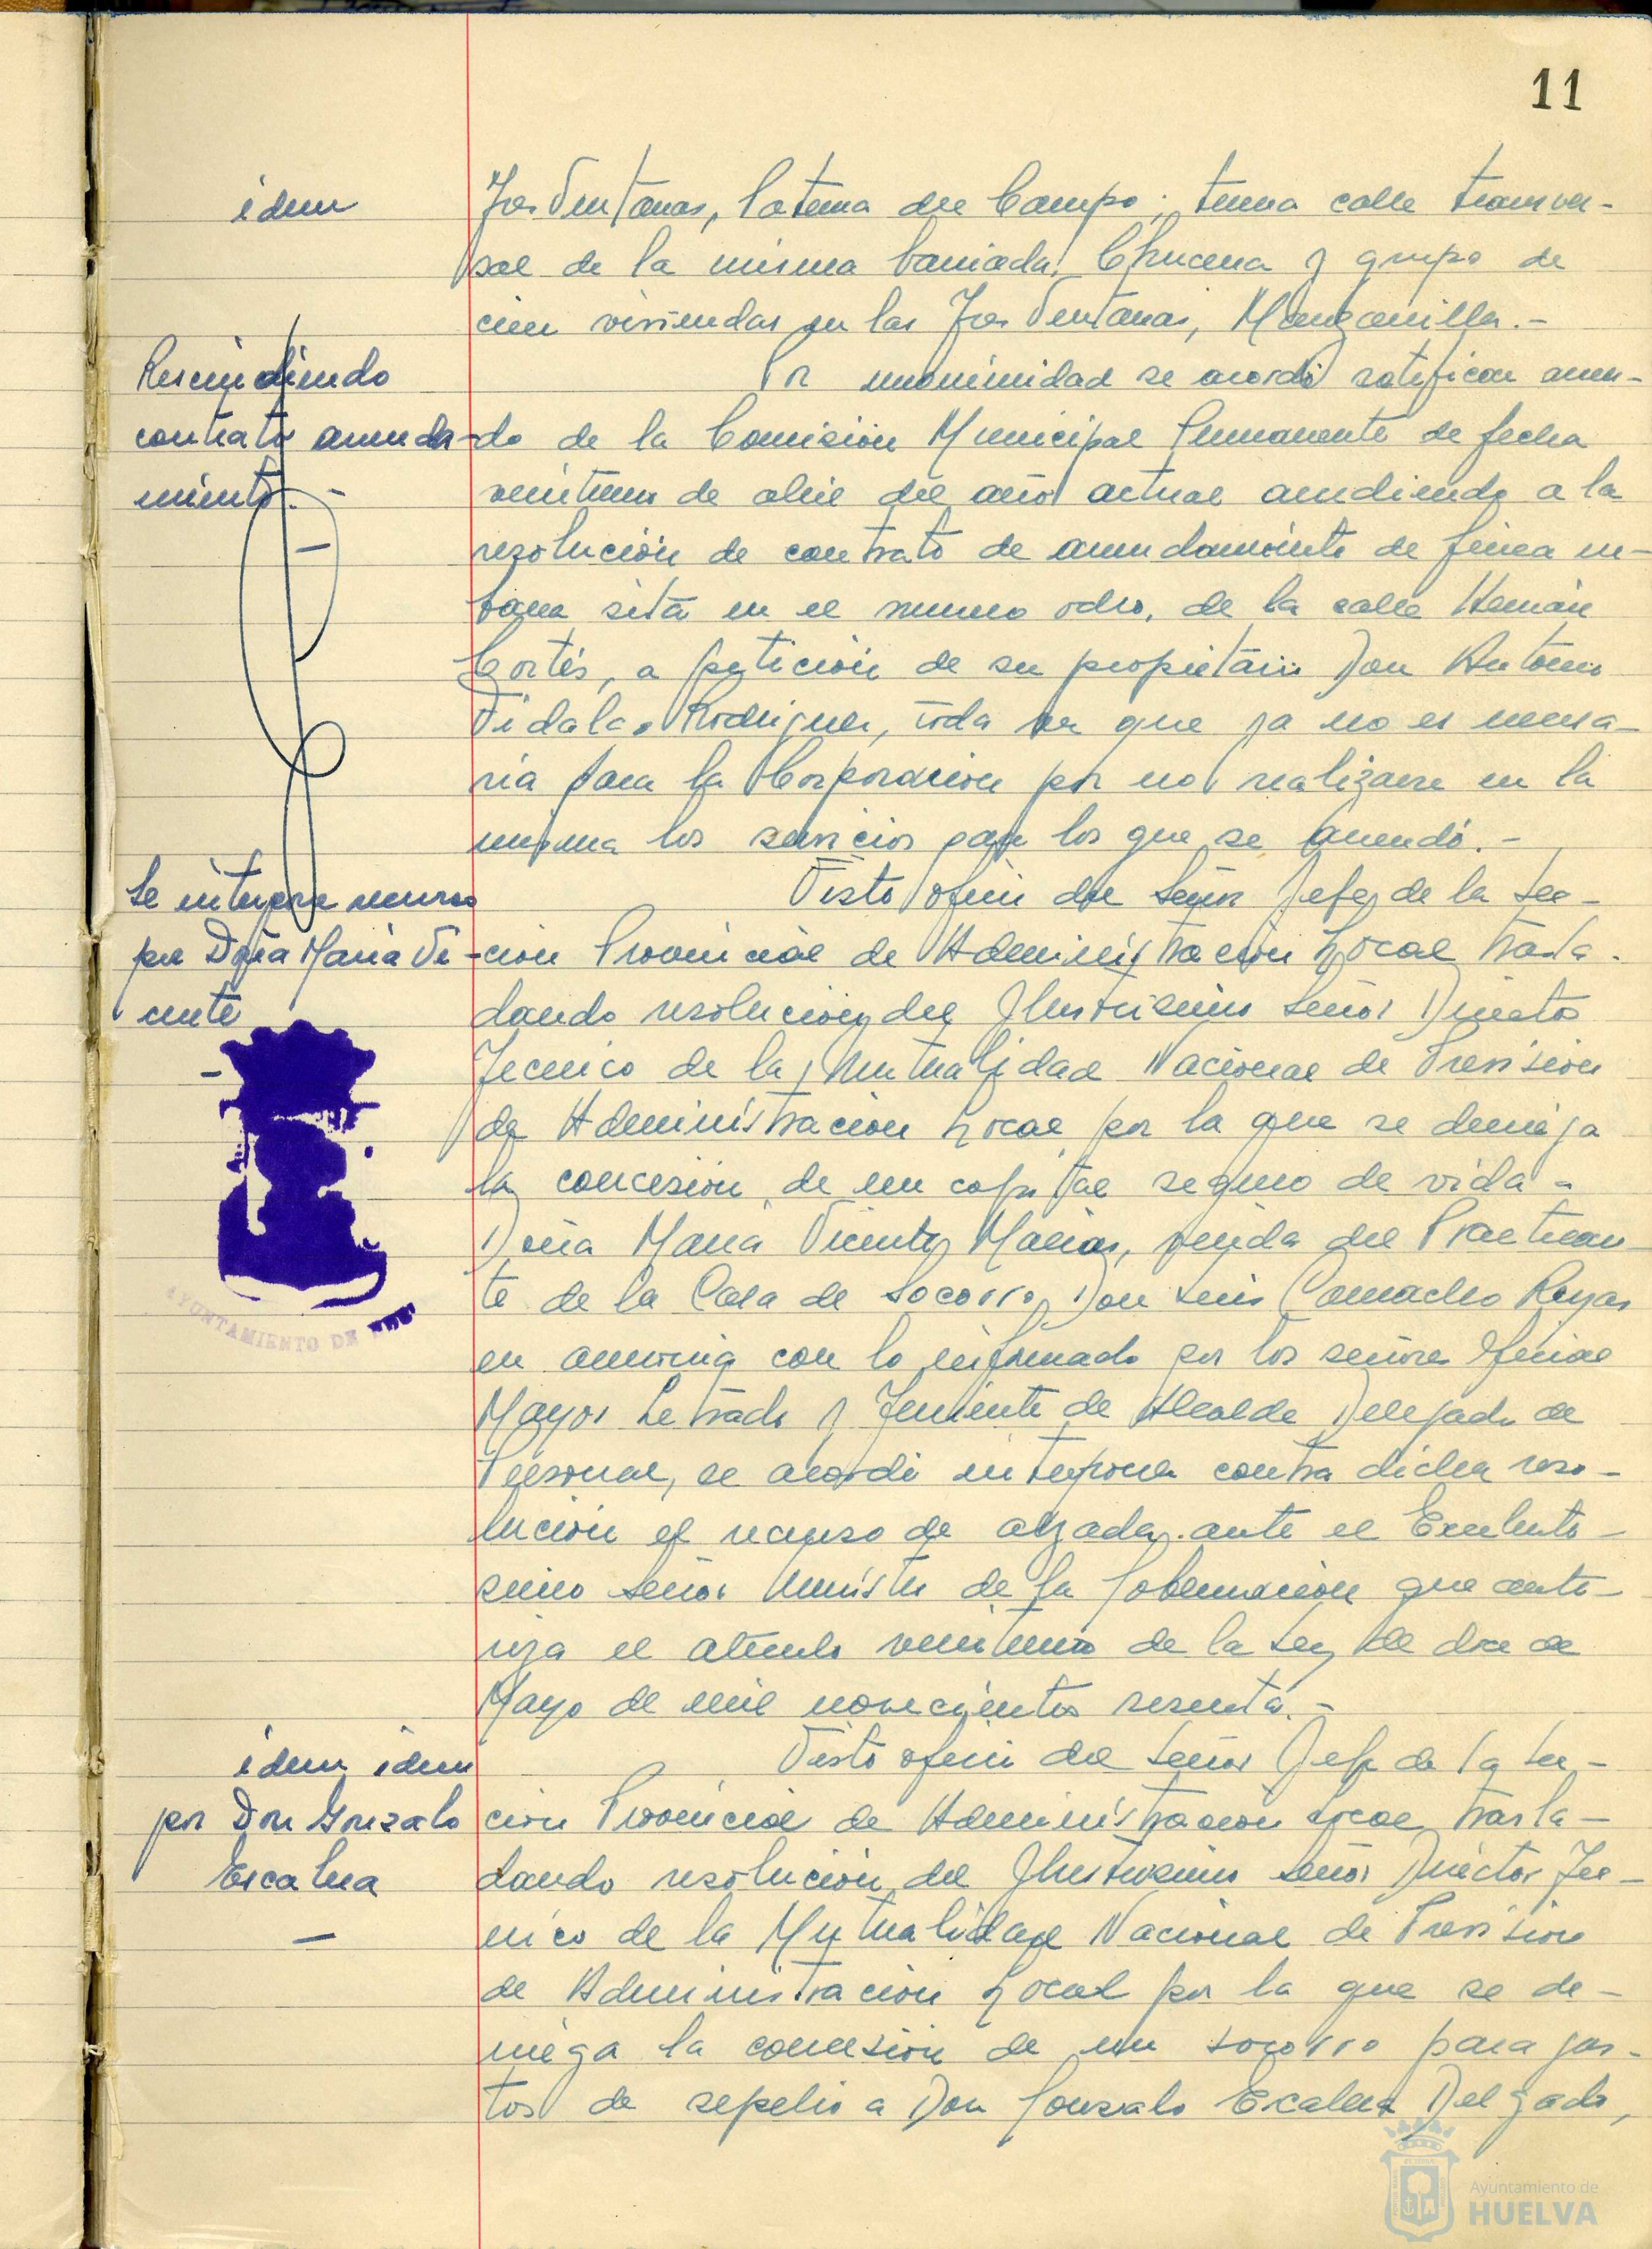 11
idem
Tres Ventanas, Paterna del Campo; tercera calle transver-
sal de la misma barriada, Chucena y grupo de
cien viviendas en las Tres Ventanas, Manzanilla.-
Rescindiendo
contrato arrenda-
miento.-
Por unanimidad se acordó ratificar acuer-
do de la Comisión Municipal Permanente de fecha
veintiuno de abril del año actual accediendo a la
resolución de contrato de arrendamiento de finca ur-
bana sita en el numero ocho, de la calle Hernán
Cortés, a petición de su propietario Don Antonio
Vidal Rodriguez, toda vez que ya no es necesa-
ria para la Corporación por no realizarse en la
misma los servicios para los que se arrendó.-
Se interpone recurso
por Doña Maria Vi-
cente
-
Visto oficio del Señor Jefe de la Sec-
ción Provincial de Administración Local trasla-
dando resolución del Ilustrisimo Señor Director
Tecnico de la Mutualidad Nacional de Previsión
de Administración Local por la que se deniega
la concesión de un capital seguro de vida -
Doña Maria Vicente Macias, viuda del Practican-
te de la Casa de Socorro, Don Luis Camacho Rojas
en armonia con lo informado por los señores Oficial
Mayor Letrado y Teniente de Alcalde Delegado de
Personal, se acordó interponer contra dicha reso-
lución el recurso de alzada ante el Excelentí-
simo Señor Ministro de la Gobernación que auto-
riza el articulo veintiuno de la Ley de doce de
Mayo de mil novecientos sesenta.-
AYUNTAMIENTO DE
idem idem
por Don Gonzalo
Escalera
-
Visto oficio del Señor Jefe de la Sec-
ción Provincial de Administración Local trasla-
dando resolución del Ilustrisimo Señor Director Téc-
nico de la Mutualidad Nacional de Previsión
de Administración Local por la que se de-
niega la concesión de un socorro para gas-
tos de sepelio a Don Gonzalo Escalera Delgado,
Ayuntamiento de
HUELVA